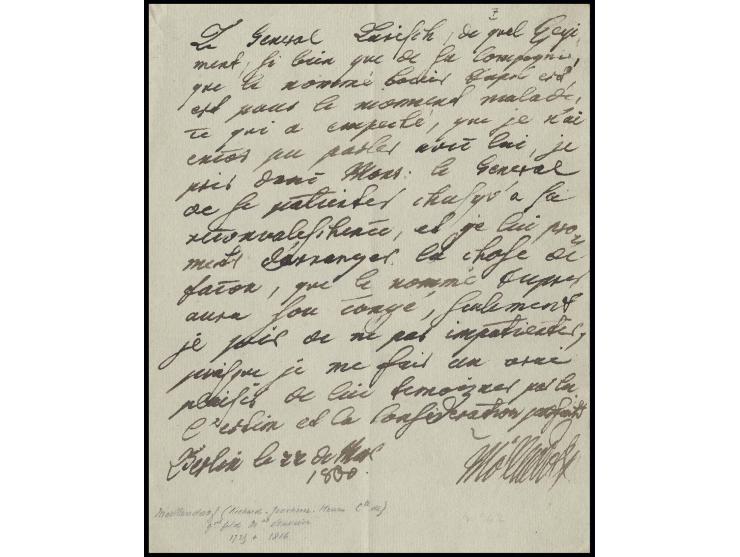 Le General Larisch, de quel Regi
ment, si bien que de sa Compagnie,
que le nommé est
est pour le moment malade,
ce qui a empeché, que je n'ai
encor pu parler avec lui, je
prie donc Mons: le General
de se patienter chusqu'a sa
reconvalescence, et je lui pro
mets d'arranger la chose de
facon, que le nommé Dupres
aura son congé, seulement
je prie de ne pas impatienter,
puisque je me fais un vrai
plaisir de lui temoigner par la
l'estim et la Consideration parfaite
Berlin le 22 de Mai
1800.
Möllendorff
Moellendorf (Richard-Joachim-Henri Cte de)
gal feld Mal Prussien
1725 + 1816